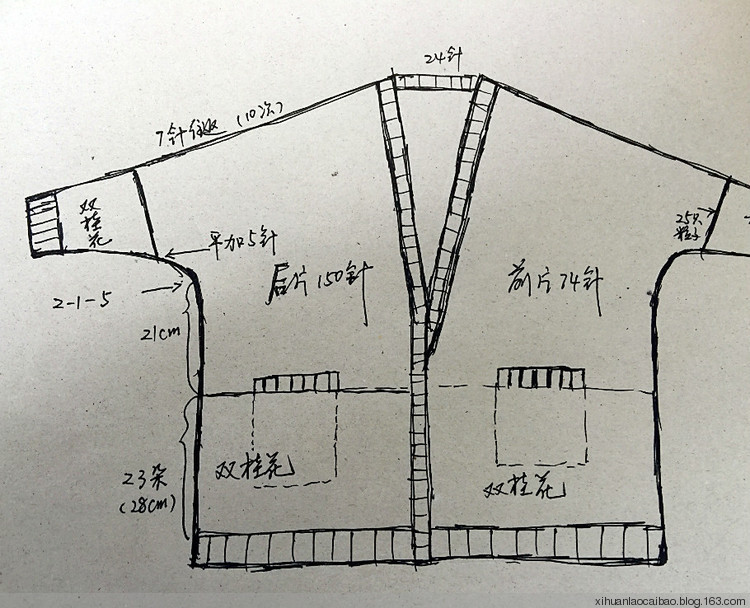 24针
7针往返(10次)
双
桂
花
平加5针
2-1-5
21cm
后片150针
前片74针
25只
23朵
(28cm)
双桂花
双桂花
xihuanlaocaibao.blog.163.com